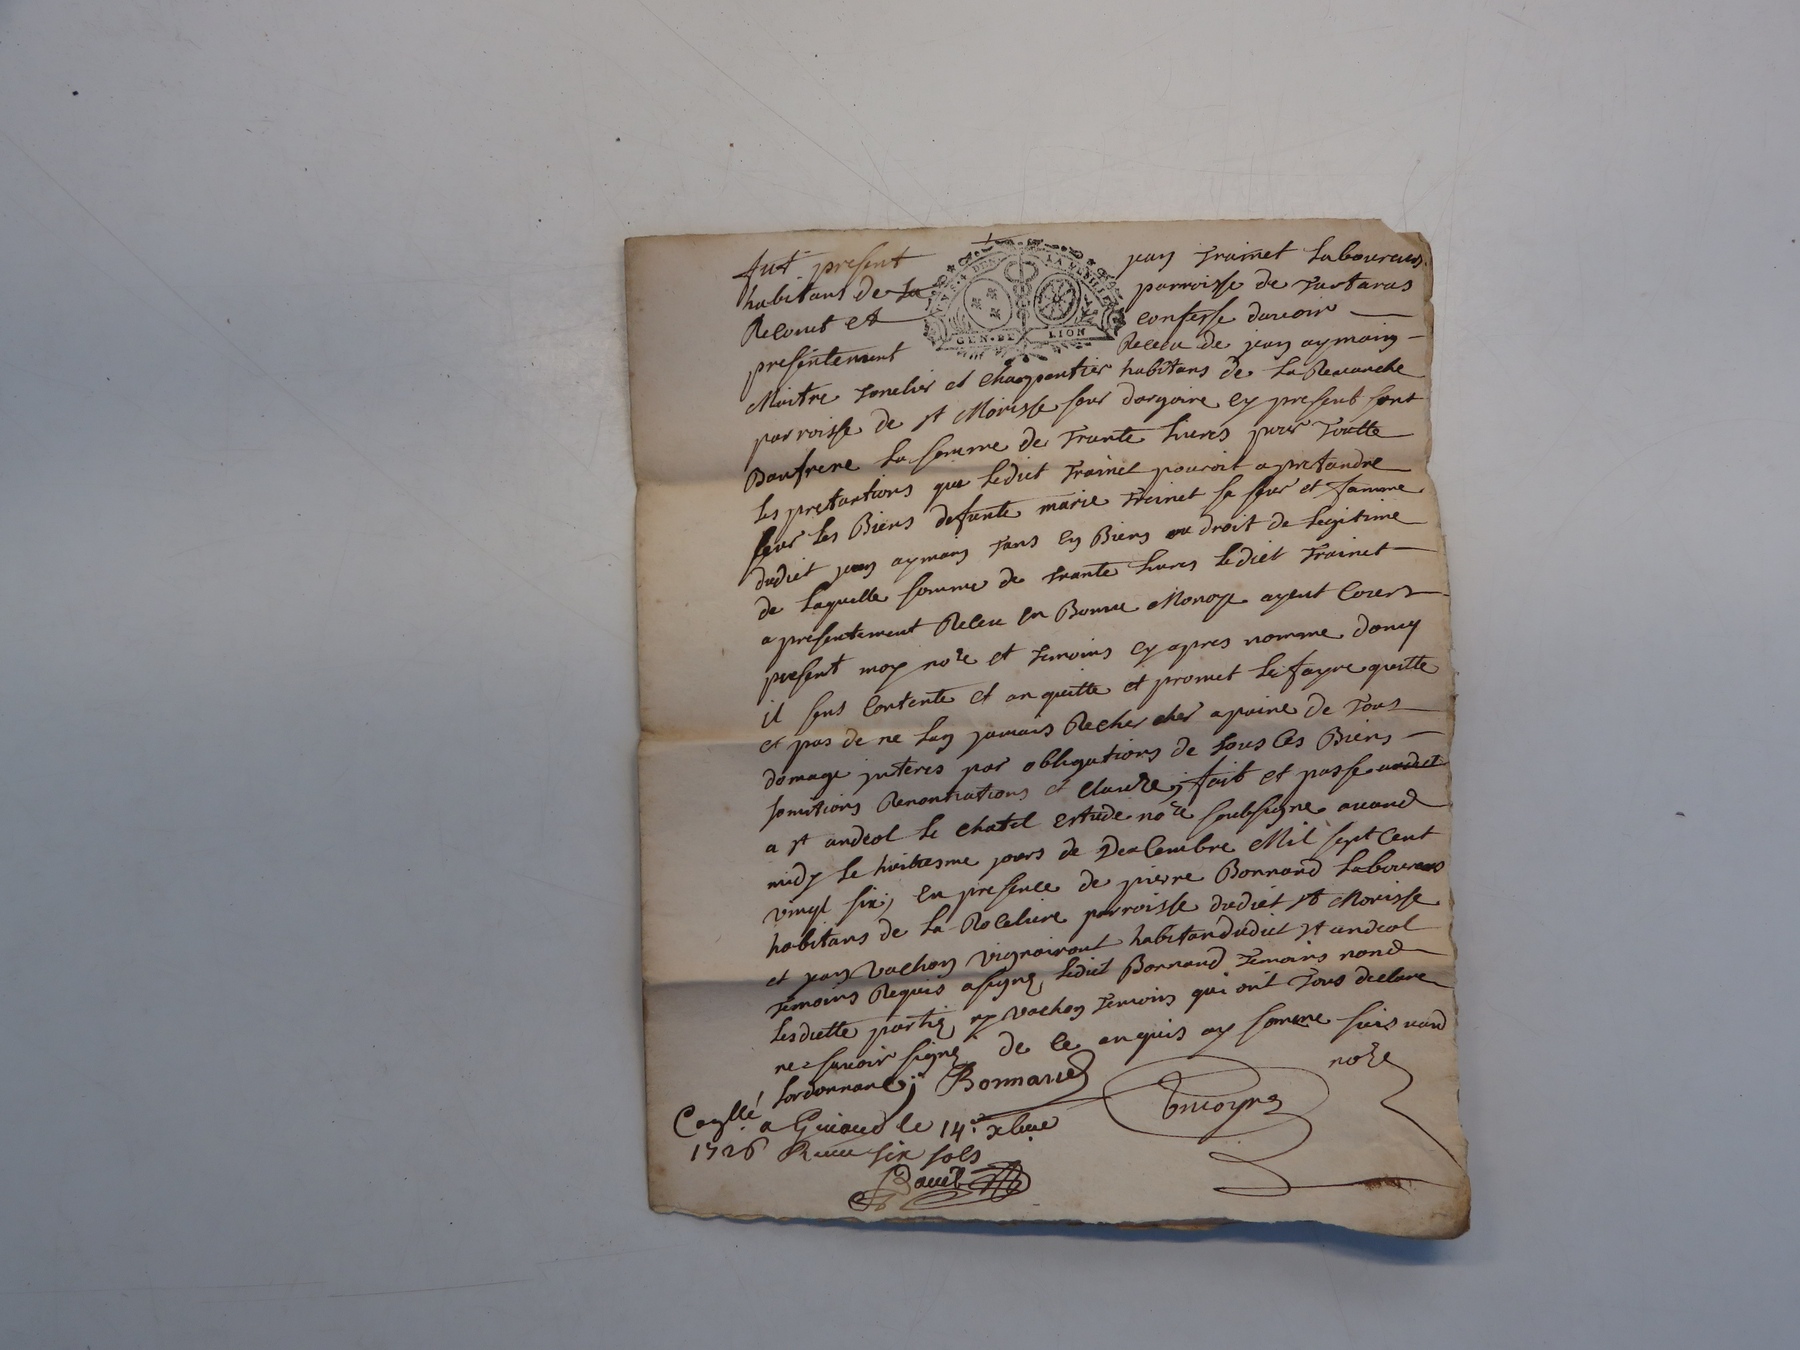 fut present jean Trainet Laboureur
habitant de La parroisse de Tartaras
Reconut et confesse dauoir
presentement Receu de jean aymain
GEN. DE LION
Maitre Tonelier et Charpantier habitans de La Reuanche
parroisse de st Morisse sour dargoire cy present sont
Baufrere La somme de Trante Liures pour Toutte
Les pretantions que Ledict Trainet pouroit apretandre
sour Les Biens defunte marie Treinet sa seur et famme
dudict jean aymain Tans en Biens ou droit de Legitime
de Laquelle somme de Trante Liures Ledict Trainet
a presentement Receu en Bonne Monoye ayent Cours
present moy nore et Temoins cy apres nomme doncy
il sens Contente et an quitte et promet Le fayre quitte
et pas de ne Lan jamais Recher cher apaine de Tous
domage jnteres par obligations de Tous Ces Biens
somitions Renontiations et Clauze; fait et passe audict
a st andeol Le Chatel estude nore soubsigne auand
midy Le huitiesme jours de DeaCembre Mil sept Cent
vingt six, en presence de pierre Bonnand Laboureur
habitans de La Roceliere parroisse dudict st Morisse
et jean Vachon Vigneiront habitandudict st andeol
Temoins Requis asigne Ledict Bonnand Temoins nond
Lesdicte partie ny Vachon Temoins qui ont Tous declare
ne sauoir signe de Ce anquis ay somme suis uand
Lordonnance; Bonnand nore
Conllé a Giuord le 14e xbre
1726 Receu six sols